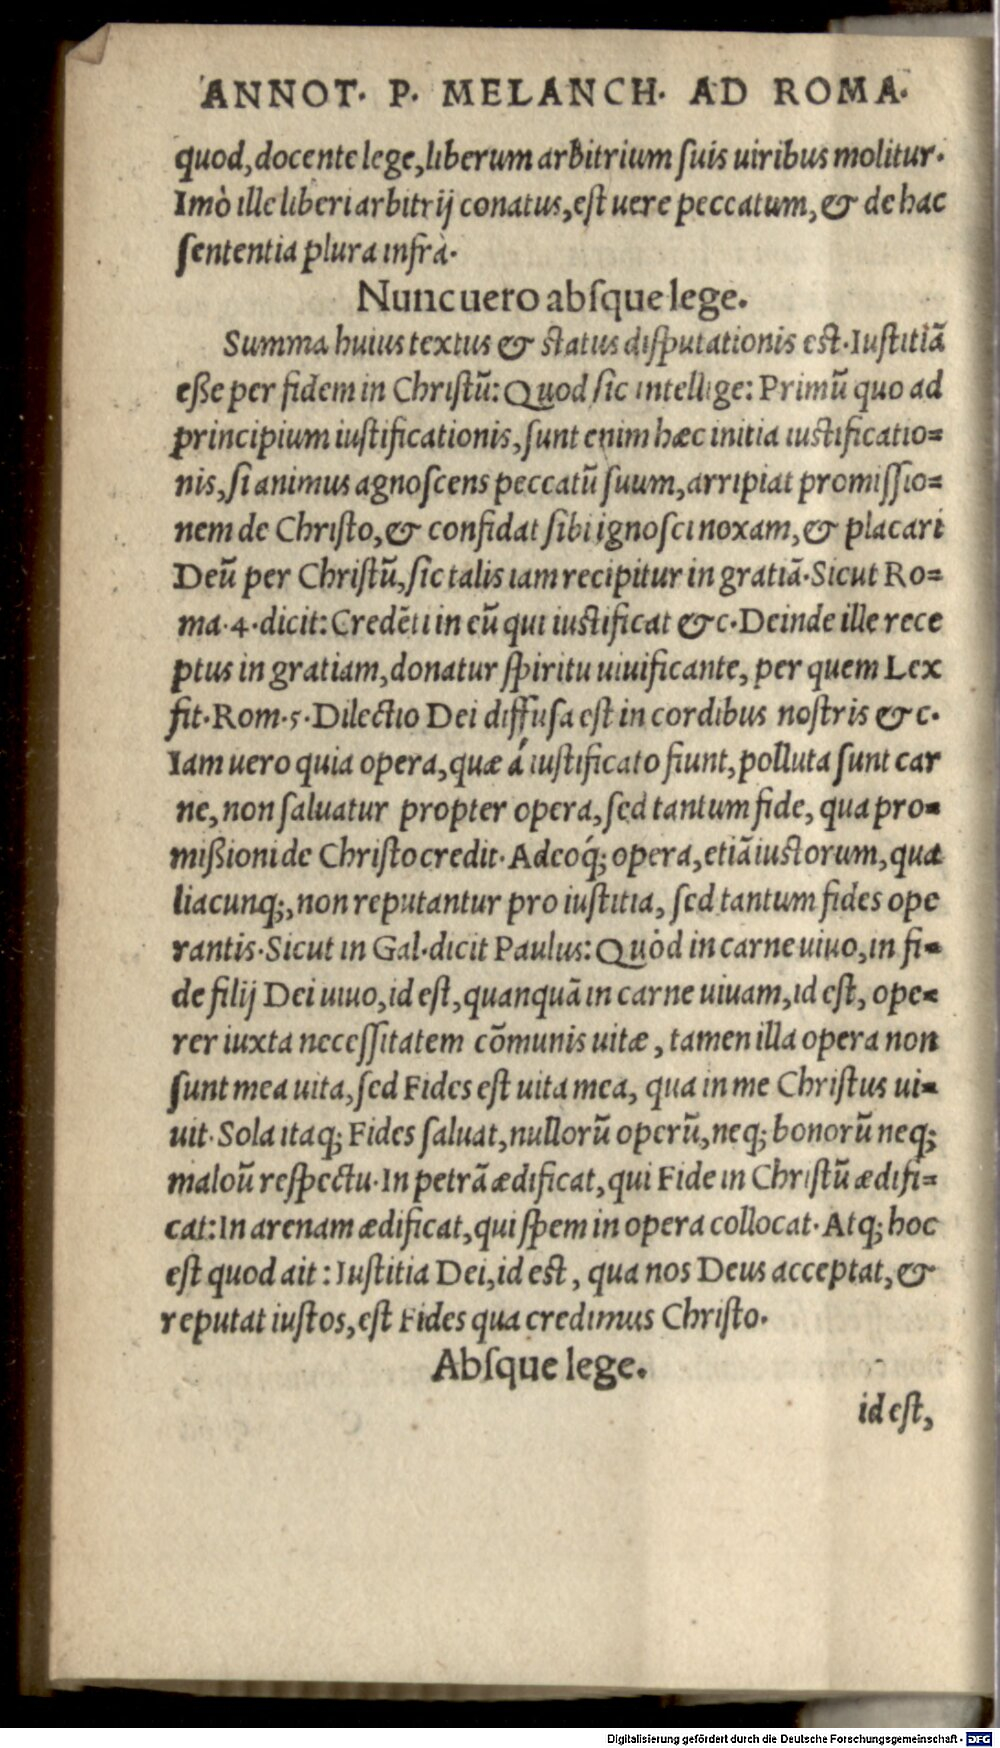 ANNOT. P. MELANCH. AD ROMA.
quod, docente lege, liberum arbitrium ſuis uiribus molitur.
Imò ille liberi arbitrij conatus, eſt uere peccatum, & de hac
ſententia plura infrà.
Nunc uero abſque lege.
Summa huius textus & ſtatus diſputationis eſt. Iuſtitiã
eße per fidem in Chriſtũ: Quod ſic intellige: Primũ quo ad
principium iuſtificationis, ſunt enim hæc initia iuſtificatio=
nis, ſi animus agnoſcens peccatũ ſuum, arripiat promiſſio=
nem de Chriſto, & confidat ſibi ignoſci noxam, & placari
Deũ per Chriſtũ, ſic talis iam recipitur in gratiã. Sicut Ro=
ma. 4. dicit: Credẽti in eũ qui iuſtificat &c. Deinde ille rece
ptus in gratiam, donatur ſpiritu uiuificante, per quem Lex
fit. Rom. 5. Dilectio Dei diffuſa eſt in cordibus noſtris &c.
Iam uero quia opera, quæ á iuſtificato fiunt, polluta ſunt car
ne, non ſaluatur propter opera, ſed tantum fide, qua pro=
mißioni de Chriſto credit. Adeoq́; opera, etiã iuſtorum, qua
liacunq;, non reputantur pro iuſtitia, ſed tantum fides ope
rantis. Sicut in Gal. dicit Paulus: Quòd in carne uiuo, in fi=
de filij Dei uiuo, id eſt, quanquã in carne uiuam, id eſt, ope=
rer iuxta neceſſitatem cõmunis uitæ, tamen illa opera non
ſunt mea uita, ſed Fides eſt uita mea, qua in me Chriſtus ui=
uit. Sola itaq; Fides ſaluat, nullorũ operũ, neq; bonorũ neq;
maloũ reſpectu. In petrã ædificat, qui Fide in Chriſtũ ædifi=
cat: In arenam ædificat, qui ſpem in opera collocat. Atq; hoc
eſt quod ait: Iuſtitia Dei, id eſt, qua nos Deus acceptat, &
reputat iuſtos, eſt Fides qua credimus Chriſto.
Abſque lege.
id eſt,
Digitalisierung gefördert durch die Deutsche Forschungsgemeinschaft - DFG